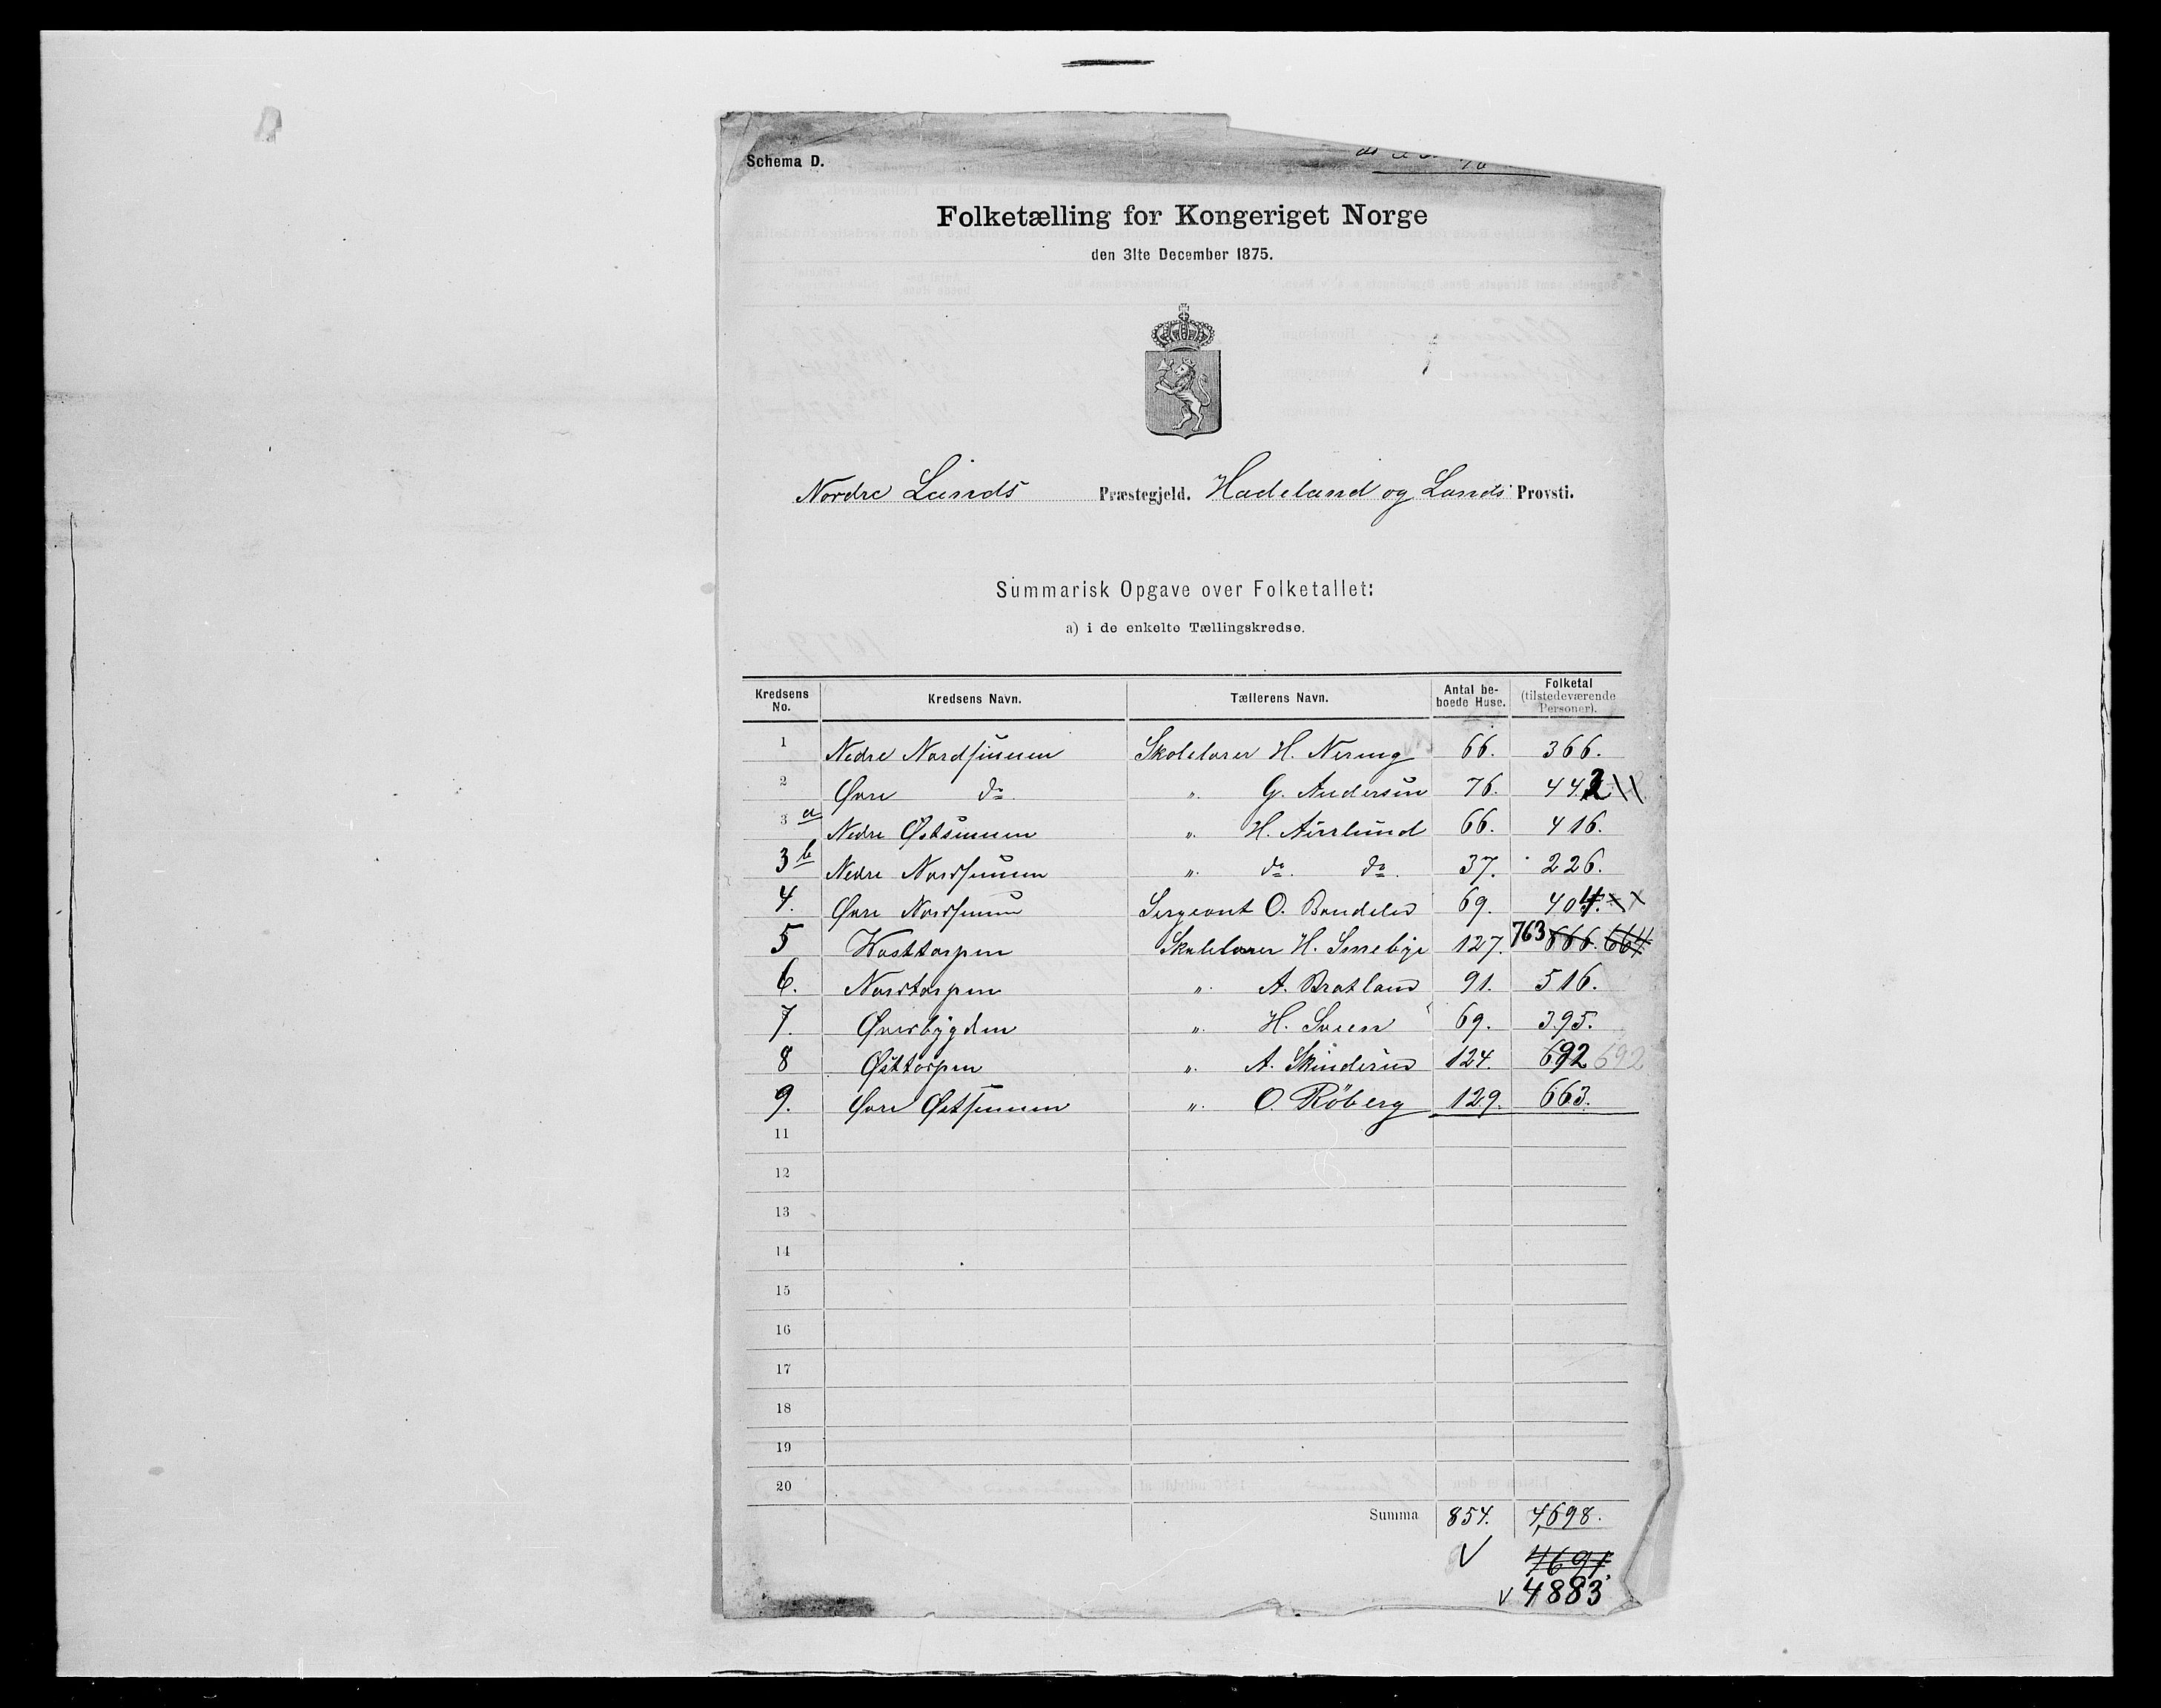 Schema D.
Folketælling for Kongeriget Norge
den 31te December 1875.
Nordre Lands Præstegjeld. Hadeland og Lands Provsti.
Summarisk Opgave over Folketallet:
a) i de enkelte Tællingskredse.
Kredsens No. Kredsens Navn. Tællerens Navn. Antal beboede Huse. Folketal (tilstedeværende Personer).
1 Nedre Nordsinnen Skolelærer H. Nering 66. 366.
2 Øvre do " G. Andersen 76. 442
3 a Nedre Østsinnen " H. 66. 416.
3 b Nedre Nordsinnen " do. do. 37. 226.
4. Øvre Nordsinnen Sergeant O. Bondelid 69. 404.
5 Vesttorpen Skolelærer H. Smebye 127. 763 666. 664
6. Nordtorpen " A. Bratland 91. 516.
7. Øverbygden " H. 69. 395.
8 Østtorpen " A. Skinderud 124. 692 692
9. Øvre Østsinnen " O. Röberg 129. 663.
11
12
13
14
15
16
17
18
19
20
Summa 854. 4,698.
4691
4883